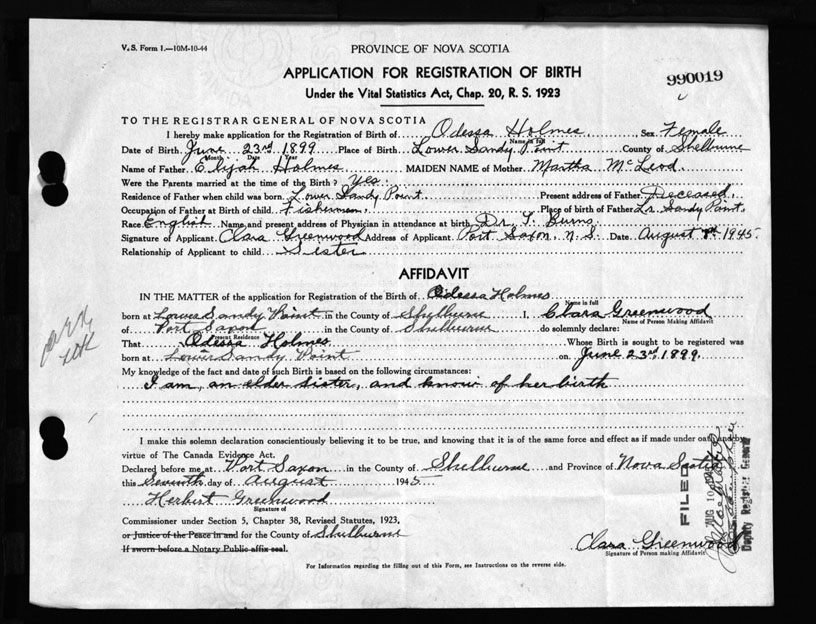 V. S. Form 1.—10M-10-44
PROVINCE OF NOVA SCOTIA
APPLICATION FOR REGISTRATION OF BIRTH
990019
Under the Vital Statistics Act, Chap. 20, R. S. 1923
TO THE REGISTRAR GENERAL OF NOVA SCOTIA
I hereby make application for the Registration of Birth of Odessa Holmes, Sex Female
Name in full
Date of Birth June 23rd 1899 Place of Birth Lower Sandy Point County of Shelburne
Month Date Year
Name of Father Elijah Holmes MAIDEN NAME of Mother Martha McLeod.
Were the Parents married at the time of the Birth? Yes.
Residence of Father when child was born Lower Sandy Point. Present address of Father Deceased.
Occupation of Father at Birth of child Fisherman, Place of birth of Father Lr. Sandy Point.
Race English Name and present address of Physician in attendance at birth Dr. T. Burns
Signature of Applicant Clara Greenwood Address of Applicant Port Saxon, N. S. Date August 1945.
Relationship of Applicant to child Sister
AFFIDAVIT
IN THE MATTER of the application for Registration of the Birth of Odessa Holmes
Name in full
born at Lower Sandy Point in the County of Shelburne I, Clara Greenwood
Name of Person Making Affidavit
of Port Saxon in the County of Shelburne do solemnly declare:
Present Residence
That Odessa Holmes Whose Birth is sought to be registered was
born at Lower Sandy Point on June 23rd, 1899.
My knowledge of the fact and date of such Birth is based on the following circumstances:
I am, an elder sister, and know of her birth
I make this solemn declaration conscientiously believing it to be true, and knowing that it is of the same force and effect as if made under oath and by
virtue of The Canada Evidence Act.
Declared before me at Port Saxon in the County of Shelburne and Province of Nova Scotia
this Seventh day of August 1945
Herbert Greenwood
Signature of
Commissioner under Section 5, Chapter 38, Revised Statutes, 1923,
or Justice of the Peace in and for the County of Shelburne
If sworn before a Notary Public affix seal.
Clara Greenwood
Signature of Person making Affidavit
For Information regarding the filling out of this Form, see Instructions on the reverse side.
FILED
AUG 10 1945
Deputy Registrar General